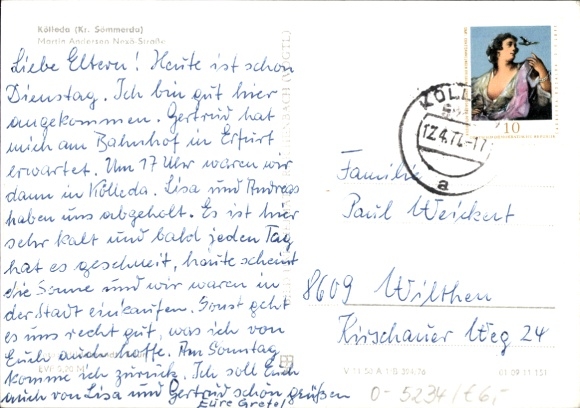 Kölleda (Kr. Sömmerda)
Martin-Andersen-Nexö-Straße
Liebe Eltern! Heute ist schon
Dienstag. Ich bin gut hier
angekommen. Gertrud hat
mich am Bahnhof in Erfurt
erwartet. Um 17 Uhr waren wir
dann in Kölleda. Lisa und Andreas
haben uns abgeholt. Es ist hier
sehr kalt und bald jeden Tag
hat es geschneit, heute scheint
die Sonne und wir waren in
der Stadt einkaufen. Sonst geht
es uns recht gut, was ich von
Euch auch hoffe. Am Sonntag
komme ich zurück. Ich soll Euch
auch von Lisa und Gertrud schön grüßen
Eure Gretel
EVP 0,20 M
10
KÖLL
12.4.77-17
a
Familie
Paul Weickert
8609 Wilthen
Kirschauer Weg 24
01 09 11 151
0-5234/€6,-